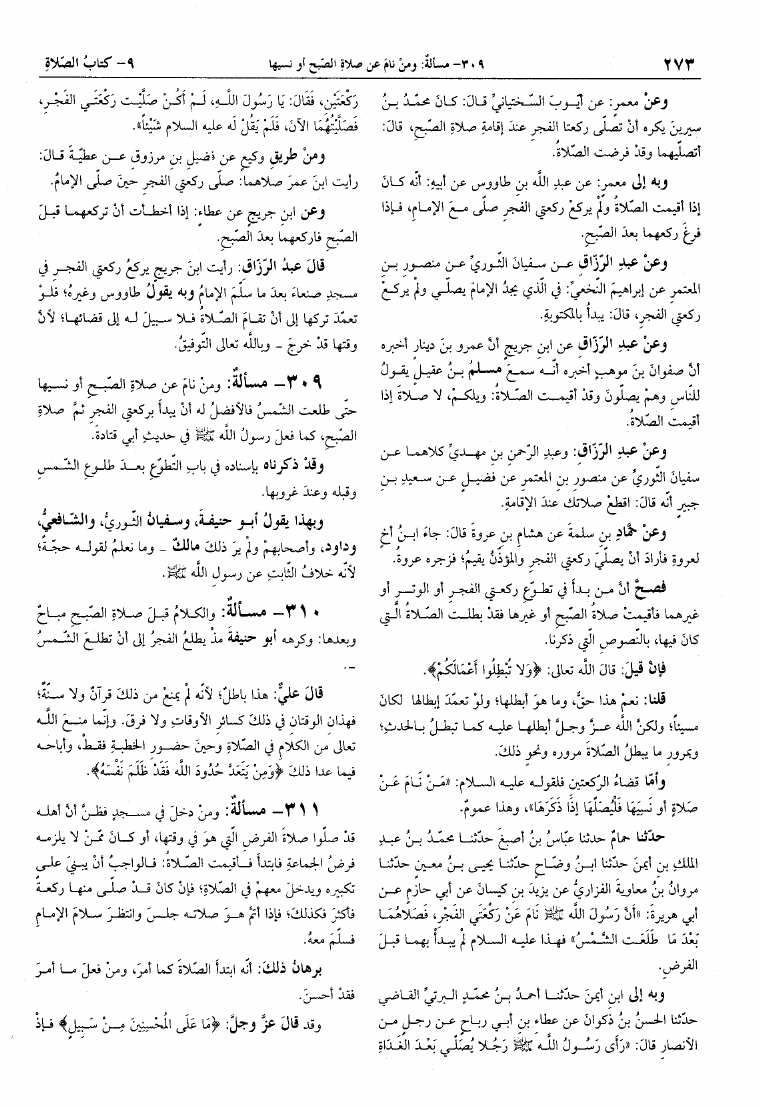 ٢٧٣
٣٠٩- مسألةٌ: ومنْ نامَ عن صلاةِ الصّبحِ أو نسيها
٩- كتابُ الصّلاةِ
وعنْ معمرٍ: عن أيّوبَ السّختيانيِّ قالَ: كانَ محمّدُ بنُ
سيرينَ يكره أنْ تصلّى ركعتا الفجرِ عندَ إقامةِ صلاةِ الصّبحِ، قالَ:
أتصلّيهما وقدْ فرضت الصّلاةُ.
وبه إلى معمرٍ: عن عبدِ اللَّه بنِ طاووسٍ عن أبيهِ: أنّه كانَ
إذا أقيمت الصّلاةُ ولمْ يركعْ ركعتي الفجرِ صلّى معَ الإمامِ، فإذا
فرغَ ركعهما بعدَ الصّبحِ.
وعنْ عبدِ الرّزّاقِ عن سفيانَ الثّوريِّ عن منصورِ بنِ
المعتمرِ عن إبراهيمَ النّخعيِّ: في الّذي يجدُ الإمامَ يصلّي ولمْ يركعْ
ركعتي الفجرِ، قالَ: يبدأُ بالمكتوبةِ.
وعنْ عبدِ الرّزّاقِ عن ابنِ جريجٍ أنَّ عمرو بنَ دينارٍ أخبره
أنَّ صفوانَ بنَ موهبٍ أخبره أنّه سمعَ مسلمَ بنَ عقيلٍ يقولُ
للنّاسِ وهمْ يصلّونَ وقدْ أقيمت الصّلاةُ: ويلكمْ، لا صلاةَ إذا
أقيمت الصّلاةُ.
وعنْ عبدِ الرّزّاقِ: وعبدِ الرّحمنِ بنِ مهديٍّ كلاهما عن
سفيانَ الثّوريِّ عن منصورِ بنِ المعتمرِ عن فضيلٍ عن سعيدِ بنِ
جبيرٍ أنّه قالَ: اقطعْ صلاتك عندَ الإقامةِ.
وعنْ حمّادِ بنِ سلمةَ عن هشامِ بنِ عروةَ قالَ: جاءَ ابنُ أخٍ
لعروةَ فأرادَ أنْ يصلّيَ ركعتي الفجرِ والمؤذّنُ يقيمُ؛ فزجره عروةُ.
فصحَّ أنَّ من بدأَ في تطوّعِ ركعتي الفجرِ أو الوترِ أو
غيرهما فأقيمتْ صلاةُ الصّبحِ أو غيرها فقدْ بطلت الصّلاةُ الّتي
كانَ فيها، بالنّصوصِ الّتي ذكرنا.
فإنْ قيلَ: قالَ اللَّه تعالى: ﴿وَلا تُبْطِلُوا أَعْمَالَكُمْ﴾.
قلنا: نعمْ هذا حقٌّ، وما هوَ أبطلها؛ ولوْ تعمّدَ إبطالها لكانَ
مسيئاً؛ ولكنَّ اللَّه عزَّ وجلَّ أبطلها عليه كما تبطلُ بالحدثِ؛
وبمرورِ ما يبطلُ الصّلاةَ مروره ونحوِ ذلكَ.
وأمّا قضاءُ الرّكعتينِ فلقولهِ عليه السلام: «مَنْ نَامَ عَنْ
صَلاةٍ أو نَسِيَهَا فَلْيُصَلِّهَا إذَا ذَكَرَهَا»، وهذا عمومٌ.
حدّثنا حمامٌ حدثنا عبّاسُ بنُ أصبغَ حدّثنا محمّدُ بنُ عبدِ
الملكِ بنِ أيمنَ حدّثنا ابنُ وضّاحٍ حدّثنا يحيى بنُ معينٍ حدّثنا
مروانُ بنُ معاويةَ الفزاريُّ عن يزيدَ بنِ كيسانَ عن أبي حازمٍ عن
أبي هريرةَ: «أَنَّ رَسُولَ اللَّه ﷺ نَامَ عَنْ رَكْعَتَي الفَجْرِ، فَصَلاهُمَا
بَعْدَ مَا طَلَعَت الشَّمْسُ» فهذا عليه السلام لمْ يبدأْ بهما قبلَ
الفرضِ.
وبه إلى ابنِ أيمنَ حدّثنا أحمدُ بنُ محمّدٍ البرتيُّ القاضي
حدّثنا الحسنُ بنُ ذكوانَ عن عطاءِ بنِ أبي رباحٍ عن رجلٍ من
الأنصارِ قالَ: «رَأَى رَسُولُ اللَّه ﷺ رَجُلا يُصَلِّي بَعْدَ الغَدَاةِ
رَكْعَتَيْنِ، فَقَالَ: يَا رَسُولَ اللَّهِ، لَمْ أَكُنْ صَلَّيْت رَكْعَتَي الفَجْرِ،
فَصَلَّيْتُهُمَا الآنَ، فَلَمْ يَقُلْ لَه عليه السلام شَيْئاً».
ومنْ طريقِ وكيعٍ عن فضيلِ بنِ مرزوقٍ عن عطيّةَ قالَ:
رأيت ابنَ عمرَ صلاهما: صلّى ركعتي الفجرِ حينَ صلّى الإمامُ.
وعن ابنِ جريجٍ عن عطاءٍ: إذا أخطأت أنْ تركعهما قبلَ
الصّبحِ فاركعهما بعدَ الصّبحِ.
قالَ عبدُ الرّزّاقِ: رأيت ابنَ جريجٍ يركعُ ركعتي الفجرِ في
مسجدِ صنعاءَ بعدَ ما سلّمَ الإمامُ وبه يقولُ طاووسٌ وغيره؛ فلوْ
تعمّدَ تركها إلى أنْ تقامَ الصّلاةُ فلا سبيلَ له إلى قضائها؛ لأنَّ
وقتها قدْ خرجَ - وباللَّه تعالى التّوفيقُ.
٣٠٩- مسألةٌ: ومنْ نامَ عن صلاةِ الصّبحِ أو نسيها
حتّى طلعت الشّمسُ فالأفضلُ له أنْ يبدأَ بركعتي الفجرِ ثمَّ صلاةِ
الصّبحِ، كما فعلَ رسولُ اللَّه ﷺ في حديثِ أبي قتادةَ.
وقدْ ذكرناه بإسناده في بابِ التّطوّعِ بعدَ طلوعِ الشّمسِ
وقبله وعندَ غروبها.
وبهذا يقولُ أبو حنيفةَ، وسفيانُ الثّوريُّ، والشّافعيُّ،
وداود، وأصحابهمْ ولمْ يرَ ذلكَ مالكٌ - وما نعلمُ لقوله حجّةً؛
لأنّه خلافُ الثّابتِ عن رسولِ اللَّه ﷺ.
٣١٠- مسألةٌ: والكلامُ قبلَ صلاةِ الصّبحِ مباحٌ
وبعدها: وكرهه أبو حنيفةَ مذْ يطلعُ الفجرُ إلى أنْ تطلعَ الشّمسُ
-.
قالَ عليٌّ: هذا باطلٌ؛ لأنّه لمْ يمنعْ من ذلكَ قرآنٌ ولا سنّةٌ؛
فهذانِ الوقتانِ في ذلكَ كسائرِ الأوقاتِ ولا فرقَ. وإنّما منعَ اللَّه
تعالى من الكلامِ في الصّلاةِ وحينَ حضورِ الخطبةِ فقطْ، وأباحه
فيما عدا ذلكَ ﴿وَمَنْ يَتَعَدَّ حُدُودَ اللَّه فَقَدْ ظَلَمَ نَفْسَهُ﴾.
٣١١- مسألةٌ: ومنْ دخلَ في مسجدٍ فظنَّ أنَّ أهله
قدْ صلّوا صلاةَ الفرضِ الّتي هوَ في وقتها، أو كانَ ممّنْ لا يلزمه
فرضُ الجماعةِ فابتدأَ فأقيمت الصّلاةُ: فالواجبُ أنْ يبنيَ على
تكبيره ويدخلَ معهمْ في الصّلاةِ؛ فإنْ كانَ قدْ صلّى منها ركعةً
فأكثرَ فكذلكَ؛ فإذا أتمَّ هوَ صلاته جلسَ وانتظرَ سلامَ الإمامِ
فسلّمَ معه.
برهانُ ذلكَ: أنّه ابتدأَ الصّلاةَ كما أمرَ، ومنْ فعلَ ما أمرَ
فقدْ أحسنَ.
وقد قالَ عزَّ وجلَّ: ﴿مَا عَلَى الْمُحْسِنِينَ مِنْ سَبِيلٍ﴾ فإذْ